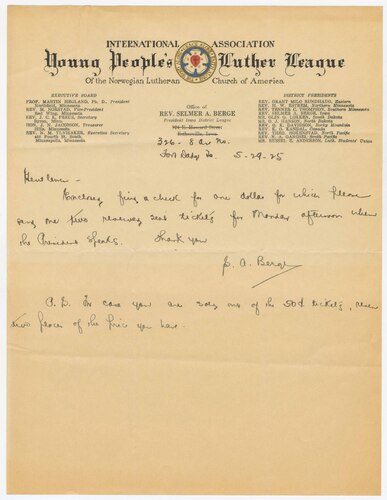 INTERNATIONAL ASSOCIATION
Young People's Luther League
Of the Norwegian Lutheran Church of America
EXECUTIVE BOARD
PROF. MARTIN HEGLAND, Ph. D., President
Northfield, Minnesota
REV. M. NORSTAD, Vice-President
Red Wing, Minnesota
REV. J. C. K. PREUS, Secretary
HON. J. N. JACOBSON, Treasurer
Hills, Minnesota
REV. N. M. YLVISAKER, Executive Secretary
425 Fourth St. South,
Minneapolis, Minnesota
Office of
REV. SELMER A. BERGE
President Iowa District League
Estherville, Iowa
DISTRICT PRESIDENTS
REV. GRANT MILO RONDHAUG, Eastern
REV. H. W. Northern Minnesota
REV. TENNES C. THOMPSON, Southern Minnesota
REV. SELMER A. BERGE, Iowa
MR. OLUF G. LOKKEN, South Dakota
MR. O. J. HANSON, North Dakota
REV. O. K. DAVIDSON, Rocky Mountain
REV. K. O. KANDAL, Canada
REV. THEO. North Pacific
REV. N. A. South Pacific
MR. RUSSEL E. ANDERSON, Luth. Students' Union
326 - 8 av No.
Fort Dodge Ia 5-29-25
Gentlemen -
Enclosed find a check for one dollar for which please
send me two reserved seat tickets for Monday afternoon when
the President speaks. Thank you
S. A. Berge
P.S. In case you are sold out of the 50¢ tickets, reserve
two places of the price you have.